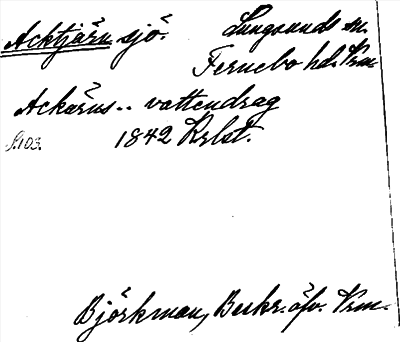 Acktjärn sjö. Lungsunds sn.
Fernebo hd. Vrm.
Ackärns.. vattendrag
S.103. 1842 Krlst.
Björkman, Beskr. öfv. Vrm.